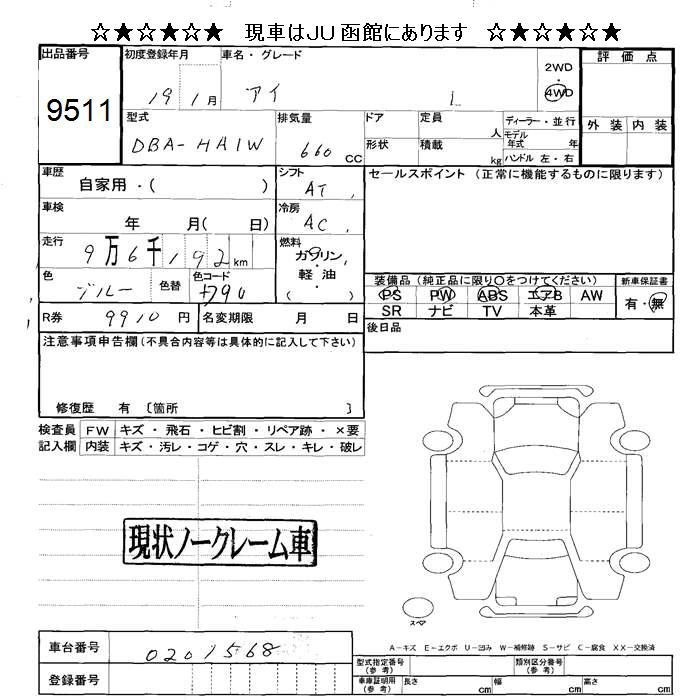 ☆★☆★☆★ 現車はJU函館にあります ☆★☆★☆★
出品番号 初度登録年月 車名・グレード 2WD ・ 4WD 評価点
9511 19 1月 アイ L
型式 排気量 ドア 定員 人 ディーラー・並行 外装 内装
DBA-HA1W 660 CC 形状 積載 kg モデル年式 年 ハンドル 左・右
車歴 自家用・( ) シフト AT セールスポイント (正常に機能するものに限ります)
車検 年 月( 日) 冷房 AC
走行 9万6千192km 燃料 ガソリン・軽油 ( )
色 ブルー 色替 色コード 装備品 (純正品に限り○をつけてください) 新車保証書
PS PW ABS エアB AW 有・無
SR ナビ TV 本革
R券 9910円 名変期限 月 日 後日品
注意事項申告欄(不具合内容等は具体的に記入して下さい)
修復歴 有 〔箇所 〕
検査員 FW キズ・飛石・ヒビ割・リペア跡・×要
記入欄 内装 キズ・汚レ・コゲ・穴・スレ・キレ・破レ
現状ノークレーム車
スペア
A-キズ E-エクボ U-凹み W-補修跡 S-サビ C-腐食 XX-交換済
車台番号 0201568
登録番号
型式指定番号(参考) 類別区分番号(参考)
車庫証明用(参考) 長さ cm 幅 cm 高さ cm